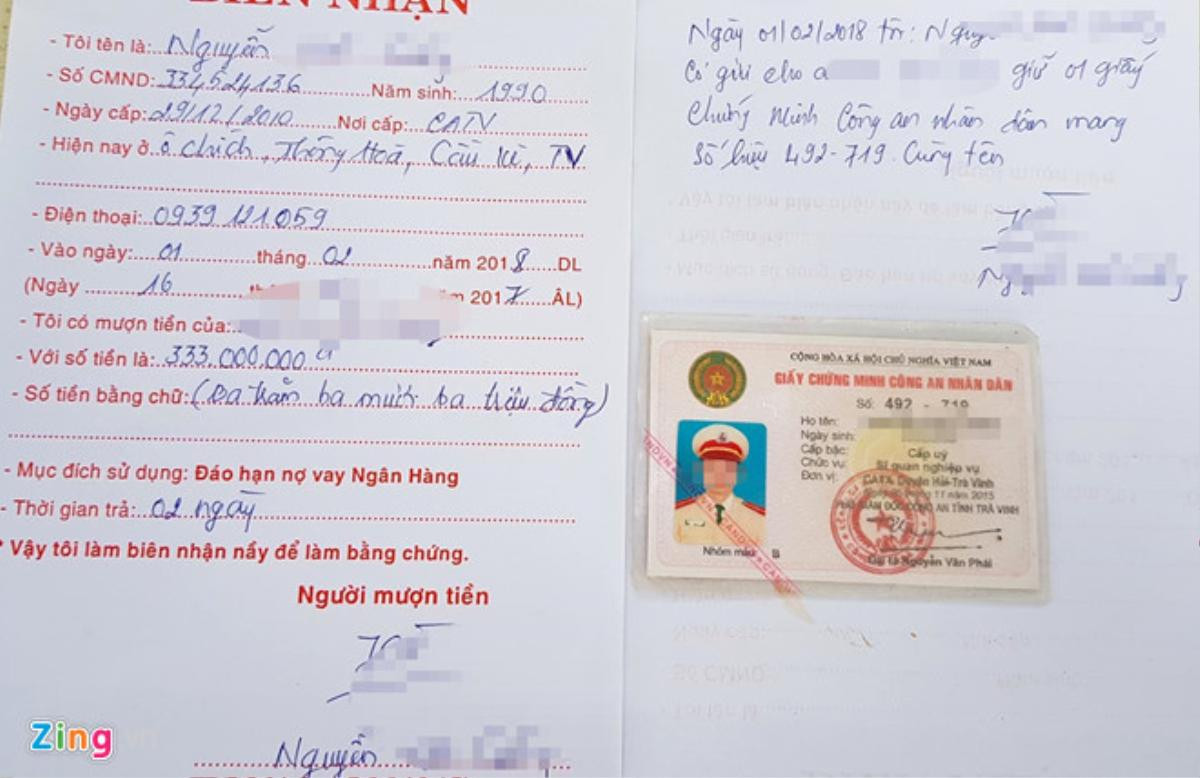 BIÊN NHẬN
- Tôi tên là: Nguyễn
- Số CMND: 334524136 Năm sinh: 1990
- Ngày cấp: 29/12/2010 Nơi cấp: CATV
- Hiện nay ở: ô chích, Thông Hoà, Cầu kè, TV
- Điện thoại: 0939 121.059
- Vào ngày: 01 tháng 02 năm 2018 DL
(Ngày 16 năm 2017 ÂL)
- Tôi có mượn tiền của:
- Với số tiền là: 333.000.000 đ
- Số tiền bằng chữ: (Ba trăm ba mươi ba triệu đồng)
- Mục đích sử dụng: Đáo hạn nợ vay Ngân Hàng
- Thời gian trả: 02 ngày
* Vậy tôi làm biên nhận nầy để làm bằng chứng.
Người mượn tiền
Nguyễn
Zing.vn
Ngày 01/02/2018 tôi:
Có gửi cho a giữ 01 giấy
Chứng Minh Công an nhân dân mang
Số hiệu 492-719. Cùng tên
CỘNG HÒA XÃ HỘI CHỦ NGHĨA VIỆT NAM
GIẤY CHỨNG MINH CÔNG AN NHÂN DÂN
Số: 492 - 719
Họ tên:
Ngày sinh:
Cấp bậc: Cấp uý
Chức vụ: Sĩ quan nghiệp vụ
Đơn vị: CATX Duyên Hải-Trà Vinh
11 năm 2015
PHÓ GIÁM ĐỐC CÔNG AN TỈNH TRÀ VINH
Đại tá Nguyễn Văn Phải
Nhóm máu: B